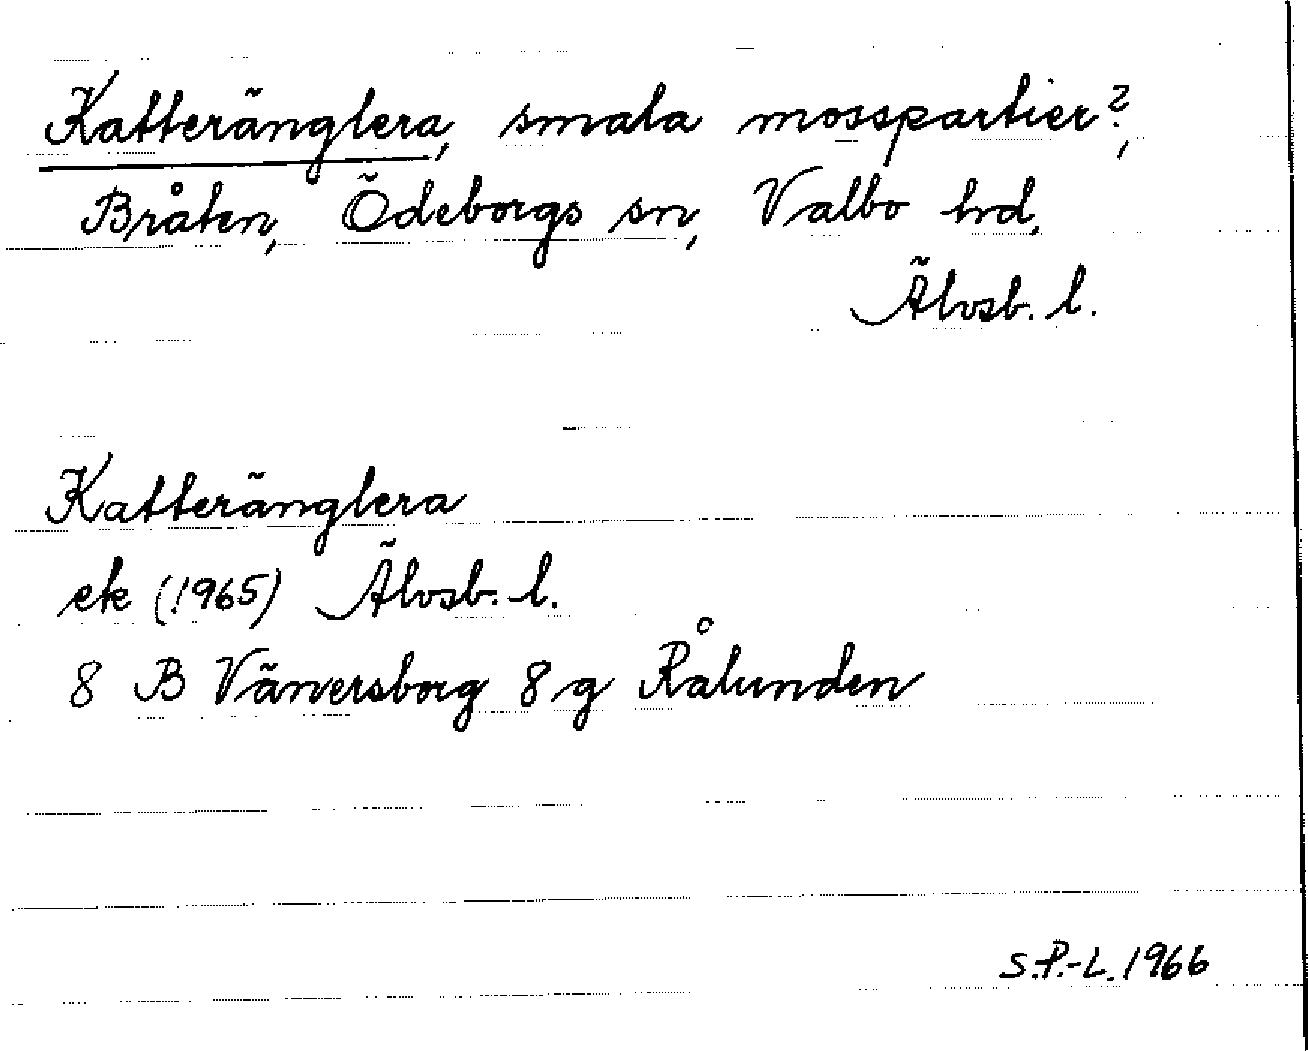 Katteränglera, smala mosspartier?,
Bråten, Ödeborgs sn, Valbo hd,
Älvsb. l.
Katteränglera
ek (1965) Älvsb. l.
8 B Vänersborg 8 g Rålunden
S.P.-L. 1966